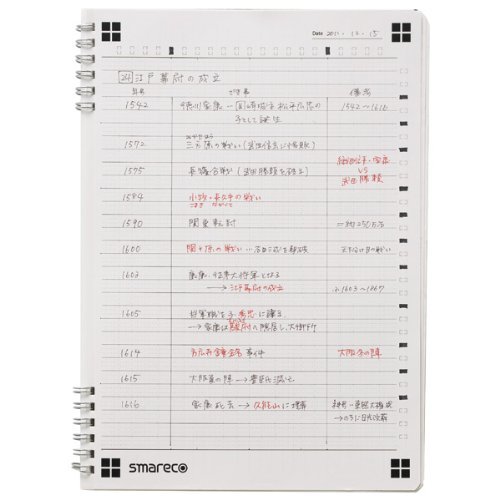 Date 2011・12・15
24 江戸幕府の成立
年号 できごと 備考
1542 徳川家康… 岡崎城主 松平広忠の 1542〜1616
子として誕生
1572 三方原の戦い(武田信玄に惨敗)
1575 長篠合戦(武田勝頼を破る) 織田信長・家康
VS
武田勝頼
1584 小牧・長久手の戦い
こまき ながくて
1590 関東転封 =約250万石
1600 関ヶ原の戦い…石田三成を 天下分け目の戦い
1603 家康、征夷大将軍となる
→江戸幕府の成立 1603〜1867
1605 将軍職を子・秀忠に譲る
→家康は駿府に隠居し大御所
1614 方広寺鐘銘事件 大阪冬の陣
1615 大阪夏の陣→豊臣氏滅亡
1616 家康死去→久能山に埋葬 神号…東照大権現
→のちに日光改葬
smareco